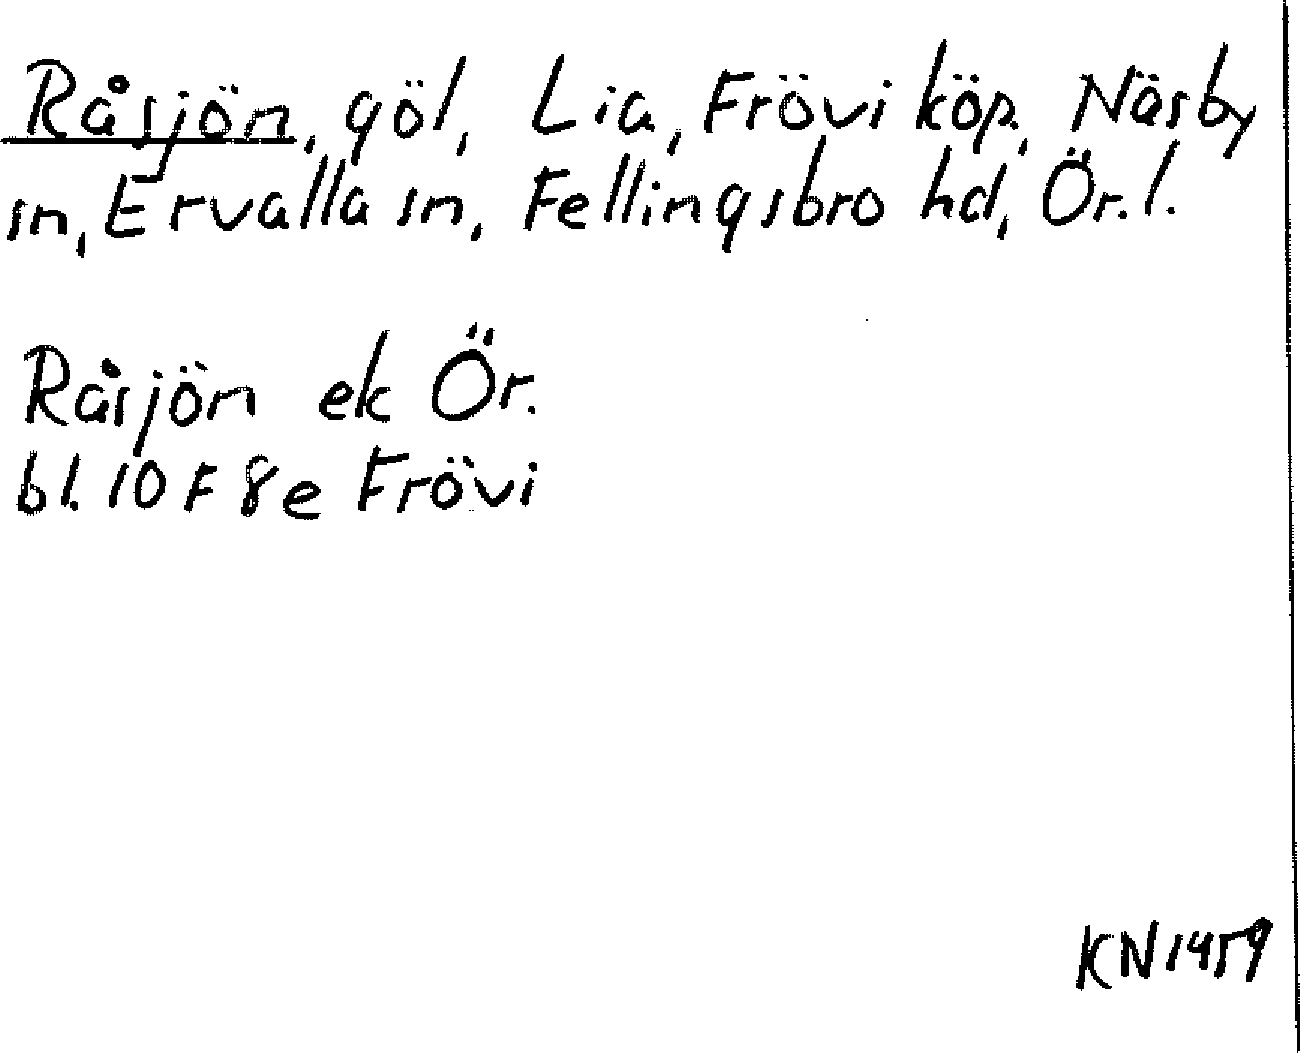 Råsjön, göl, Lia, Frövi köp, Näsby
sn, Ervalla sn, Fellingsbro hd, Ör. l.
Råsjön ek Ör.
bl. 10 F 8e Frövi
KN 1459